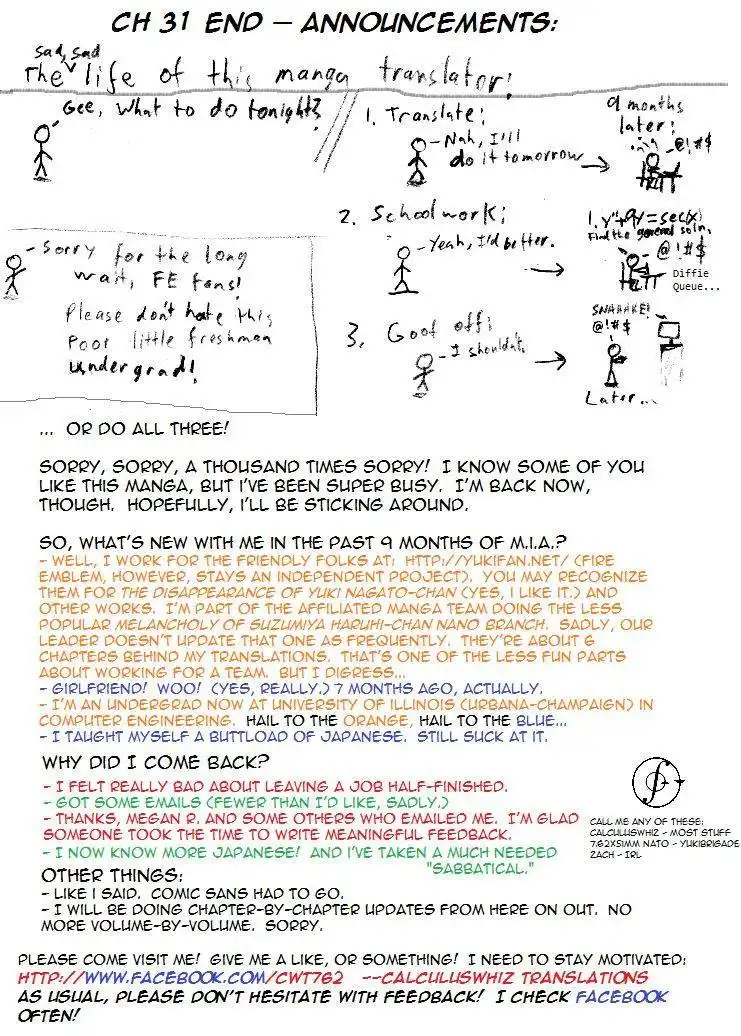 CH 31 END – ANNOUNCEMENTS:
sad, sad
The life of this manga translator!
Gee, What to do tonight?
1. Translate:
- Nah, I'll
do it tomorrow
9 months
later:
@!#$
2. Schoolwork:
- Yeah, I'd better.
1. y"+9y=sec(x)
Find the general soln.
@!#$
Diffie
Queue...
3. Goof off:
- I shouldn't.
SNAAAAKE!
@!#$
Later...
- Sorry for the long
wait, FE fans!
Please don't hate this
poor little freshman
undergrad!
... OR DO ALL THREE!
SORRY, SORRY, A THOUSAND TIMES SORRY! I KNOW SOME OF YOU
LIKE THIS MANGA, BUT I'VE BEEN SUPER BUSY. I'M BACK NOW,
THOUGH. HOPEFULLY, I'LL BE STICKING AROUND.
SO, WHAT'S NEW WITH ME IN THE PAST 9 MONTHS OF M.I.A.?
- WELL, I WORK FOR THE FRIENDLY FOLKS AT: HTTP://YUKIFAN.NET/ (FIRE
EMBLEM, HOWEVER, STAYS AN INDEPENDENT PROJECT). YOU MAY RECOGNIZE
THEM FOR THE DISAPPEARANCE OF YUKI NAGATO-CHAN (YES, I LIKE IT.) AND
OTHER WORKS. I'M PART OF THE AFFILIATED MANGA TEAM DOING THE LESS
POPULAR MELANCHOLY OF SUZUMIYA HARUHI-CHAN NANO BRANCH. SADLY, OUR
LEADER DOESN'T UPDATE THAT ONE AS FREQUENTLY. THEY'RE ABOUT 6
CHAPTERS BEHIND MY TRANSLATIONS. THAT'S ONE OF THE LESS FUN PARTS
ABOUT WORKING FOR A TEAM. BUT I DIGRESS...
- GIRLFRIEND! WOO! (YES, REALLY.) 7 MONTHS AGO, ACTUALLY.
- I'M AN UNDERGRAD NOW AT UNIVERSITY OF ILLINOIS (URBANA-CHAMPAIGN) IN
COMPUTER ENGINEERING. HAIL TO THE ORANGE, HAIL TO THE BLUE...
- I TAUGHT MYSELF A BUTTLOAD OF JAPANESE. STILL SUCK AT IT.
WHY DID I COME BACK?
- I FELT REALLY BAD ABOUT LEAVING A JOB HALF-FINISHED.
- GOT SOME EMAILS (FEWER THAN I'D LIKE, SADLY.)
- THANKS, MEGAN R. AND SOME OTHERS WHO EMAILED ME. I'M GLAD
SOMEONE TOOK THE TIME TO WRITE MEANINGFUL FEEDBACK.
- I NOW KNOW MORE JAPANESE! AND I'VE TAKEN A MUCH NEEDED
"SABBATICAL."
CALL ME ANY OF THESE:
CALCULUSWHIZ - MOST STUFF
7.62X51MM NATO - YUKIBRIGADE
ZACH - IRL
OTHER THINGS:
- LIKE I SAID. COMIC SANS HAD TO GO.
- I WILL BE DOING CHAPTER-BY-CHAPTER UPDATES FROM HERE ON OUT. NO
MORE VOLUME-BY-VOLUME. SORRY.
PLEASE COME VISIT ME! GIVE ME A LIKE, OR SOMETHING! I NEED TO STAY MOTIVATED:
HTTP://WWW.FACEBOOK.COM/CWT762 --CALCULUSWHIZ TRANSLATIONS
AS USUAL, PLEASE DON'T HESITATE WITH FEEDBACK! I CHECK FACEBOOK
OFTEN!